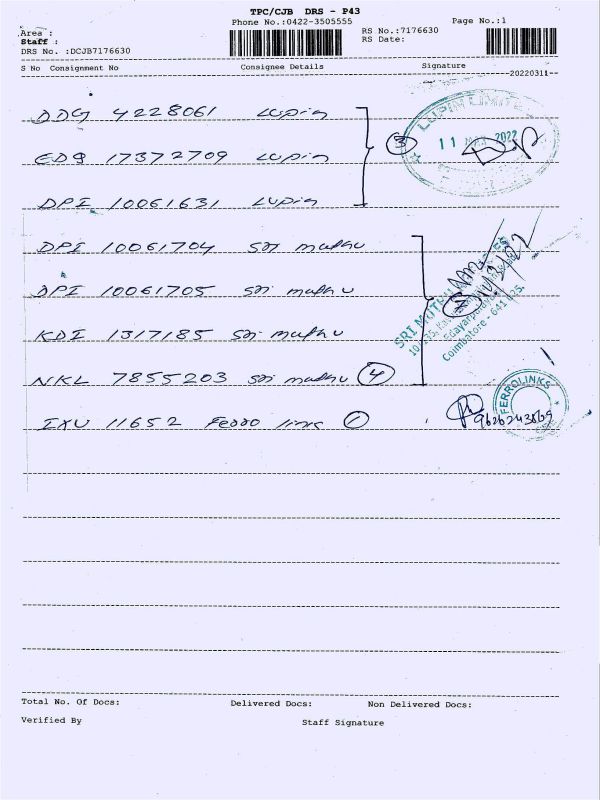 TPC/CJB DRS - P43
Phone No.:0422-3505555
Page No.:1
Area :
Staff :
DRS No. :DCJB7176630
RS No.:7176630
RS Date:
S No Consignment No Consignee Details Signature
20220311
DDG 4228061 Lupin
EDQ 17372709 Lupin
DPI 10061631 Lupin
3
LUPIN LIMITED
11 MAR 2022
DPI 10061704 Sri muthu
DPI 10061705 Sri muthu
KDI 1317185 Sri muthu
NKL 7855203 Sri muthu 4
SRI MUTHU
Coimbatore - 641 025.
11/3/22
IXU 11652 Ferro links 1
FERROLINKS
Total No. Of Docs: Delivered Docs: Non Delivered Docs:
Verified By Staff Signature